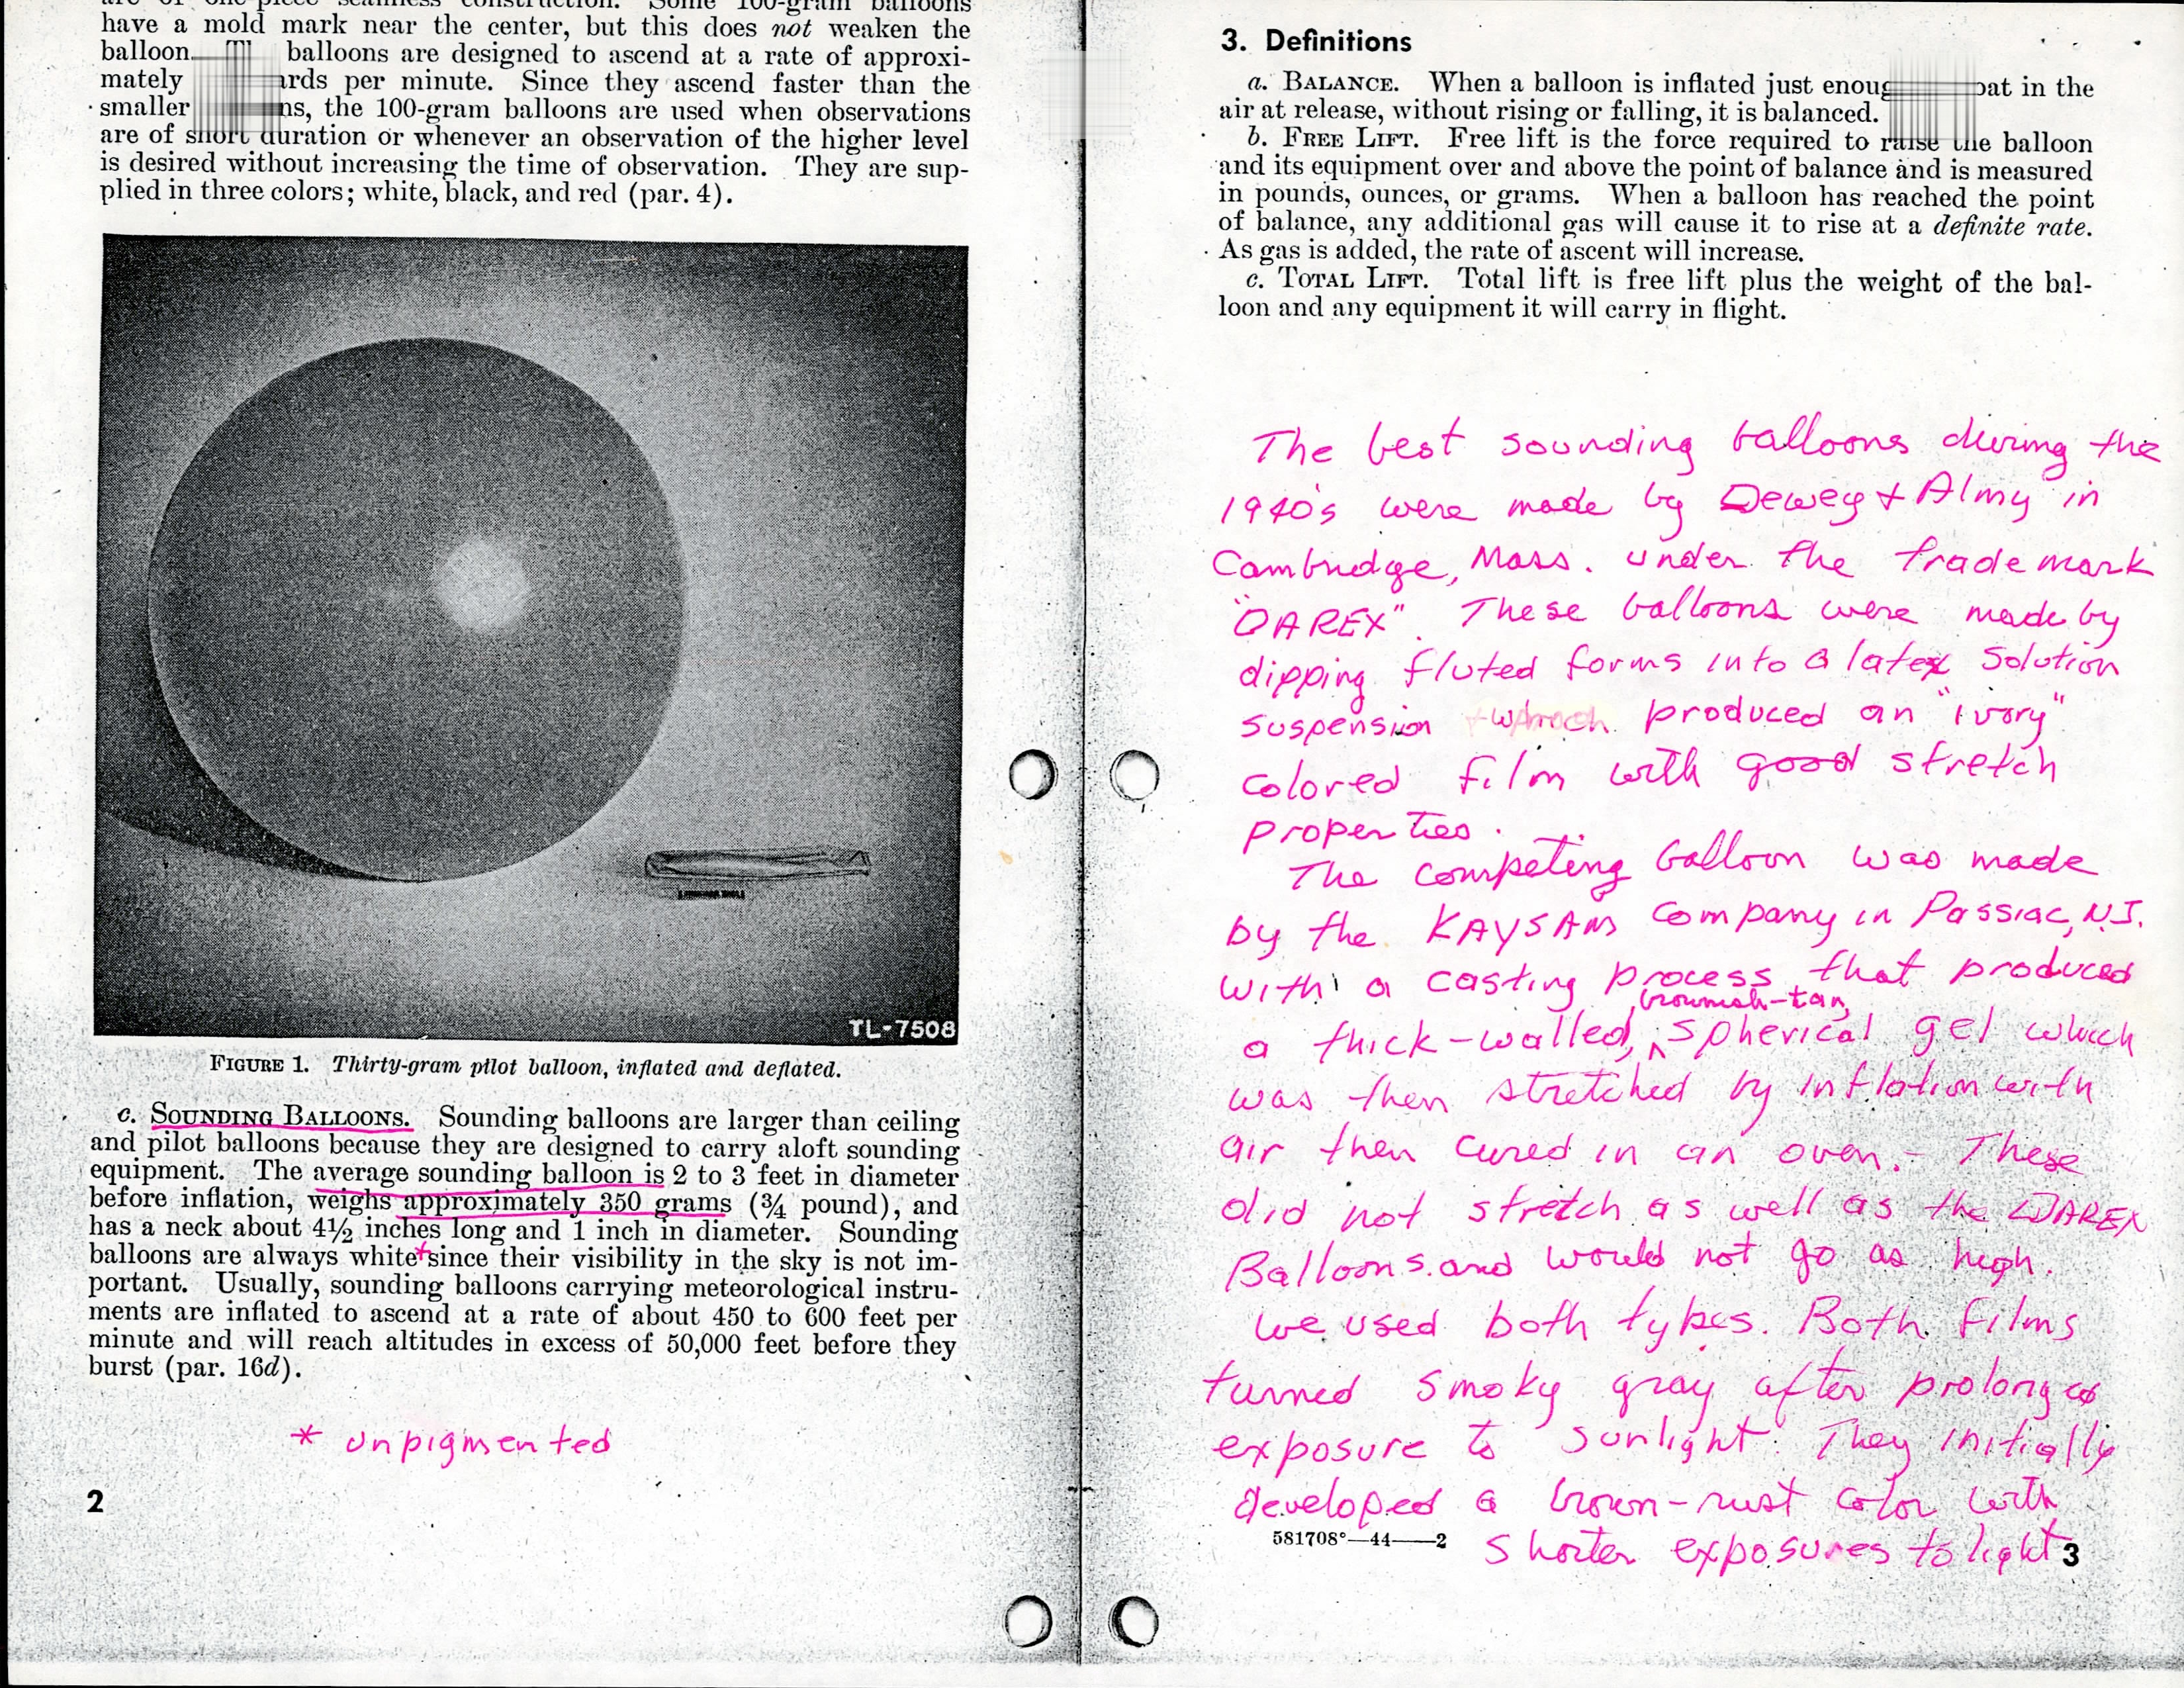 are of one-piece seamless construction. Some 100-gram balloons
have a mold mark near the center, but this does not weaken the
balloon. balloons are designed to ascend at a rate of approxi-
mately per minute. Since they ascend faster than the
smaller the 100-gram balloons are used when observations
are of short duration or whenever an observation of the higher level
is desired without increasing the time of observation. They are sup-
plied in three colors; white, black, and red (par. 4).
TL-7508
FIGURE 1. Thirty-gram pilot balloon, inflated and deflated.
c. SOUNDING BALLOONS. Sounding balloons are larger than ceiling
and pilot balloons because they are designed to carry aloft sounding
equipment. The average sounding balloon is 2 to 3 feet in diameter
before inflation, weighs approximately 350 grams (¾ pound), and
has a neck about 4½ inches long and 1 inch in diameter. Sounding
balloons are always white* since their visibility in the sky is not im-
portant. Usually, sounding balloons carrying meteorological instru-
ments are inflated to ascend at a rate of about 450 to 600 feet per
minute and will reach altitudes in excess of 50,000 feet before they
burst (par. 16d).
* unpigmented
2
3. Definitions
a. BALANCE. When a balloon is inflated just in the
air at release, without rising or falling, it is balanced.
b. FREE LIFT. Free lift is the force required to raise the balloon
and its equipment over and above the point of balance and is measured
in pounds, ounces, or grams. When a balloon has reached the point
of balance, any additional gas will cause it to rise at a definite rate.
As gas is added, the rate of ascent will increase.
c. TOTAL LIFT. Total lift is free lift plus the weight of the bal-
loon and any equipment it will carry in flight.
The best sounding balloons during the
1940's were made by Dewey + Almy in
Cambridge, Mass. under the trade mark
"DAREX". These balloons were made by
dipping fluted forms into a latex solution
suspension which produced an "ivory"
colored film with good stretch
properties.
The competing balloon was made
by the KAYSAM Company in Passiac, N.J.
with a casting process that produced
brownish-tan,
a thick-walled, ^ spherical gel which
was then stretched by inflation with
air then cured in an oven. - These
did not stretch as well as the DAREX
Balloons and would not go as high.
We used both types. Both films
turned smoky gray after prolonged
exposure to sunlight. They initially
developed a brown-rust color with
shorter exposures to light
581708°—44——2
3